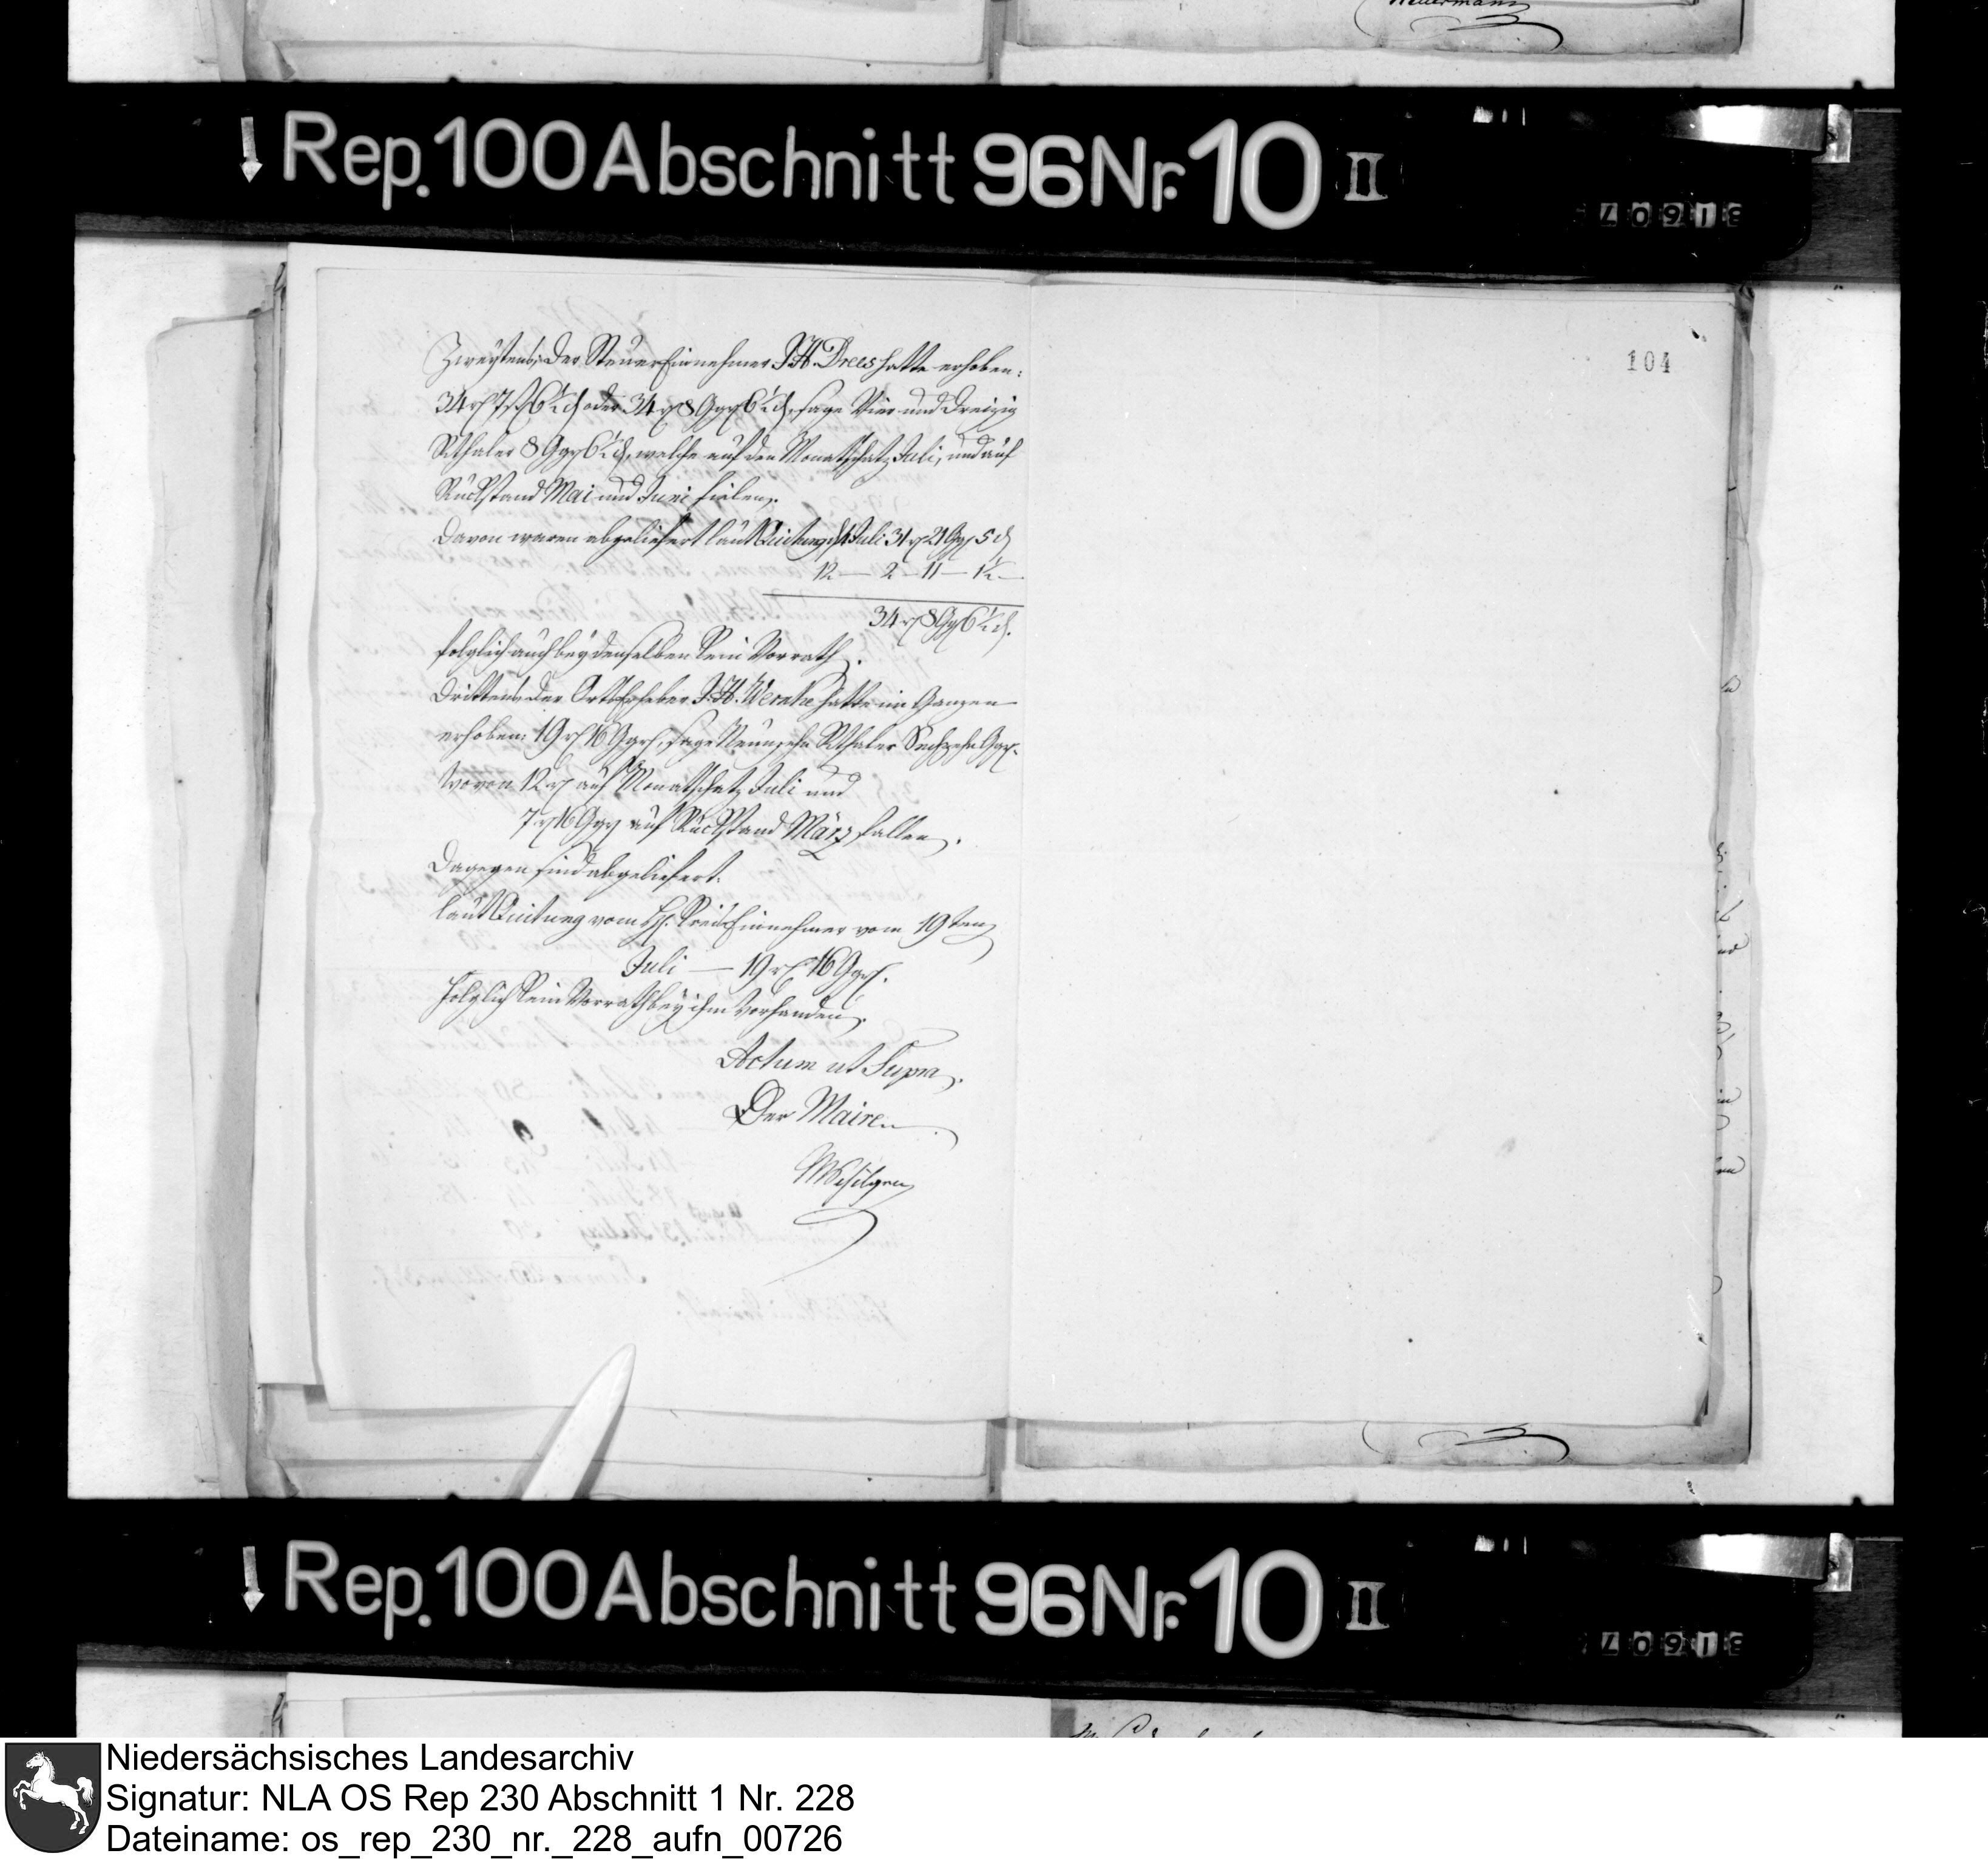 Rep. 100 Abschnitt 96 Nr. 10 II
31607
104
Zweytens, der SteuerEinnehmer J. H. Drees hatte erhoben:
34 r 7 ß 6½ d oder 34 r 8 Ggr 6½ d, sage Vier und Dreizig
Rthaler 8 Ggr 6½ d, welche auf den Monatschatz Juli, und auf
Rückstand Mai und Juni fielen.
Davon waren abgeliefert laut Quitung d 4 Juli 31 r 21 Ggr 5 d
12 — 2 — 11 — 1½ —
34 r 8 Ggr 6½ d.
folglich auch bey denselben kein Vorrath.
Drittens, der Ortserheber J. H. hatte im Ganzen
erhoben: 19 r 16 Ggr, sage Neunzehn Rthaler Sechzehn Ggr.
wovon 12 r auf Monatschatz Juli und
7 r 16 Ggr auf Rückstand März fallen.
Dagegen sind abgeliefert:
laut Quitung vom H. KreisEinnehmer vom 19ten
Juli — 19 r 16 Ggr.
Folglich kein Vorrath bey ihm vorhanden.
Actum ut Supra.
Der Maire
Rep. 100 Abschnitt 96 Nr. 10 II
31607
Niedersächsisches Landesarchiv
Signatur: NLA OS Rep 230 Abschnitt 1 Nr. 228
Dateiname: os_rep_230_nr._228_aufn_00726